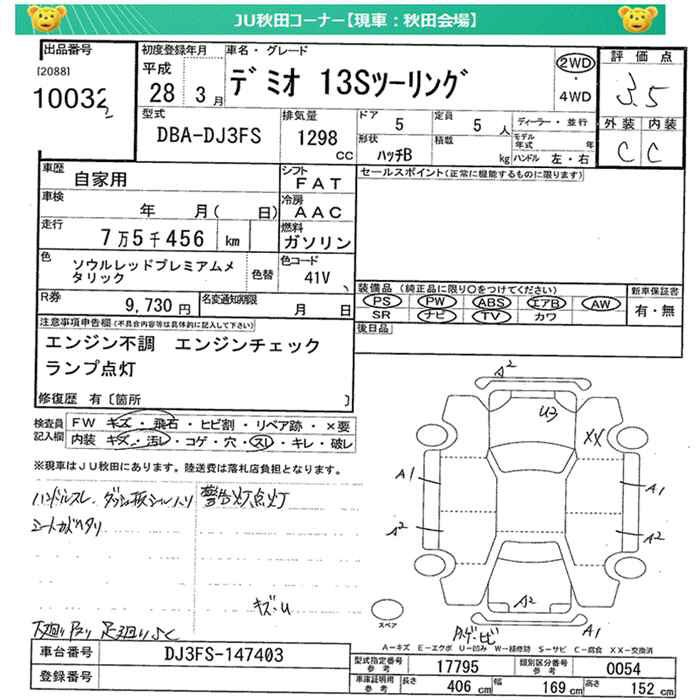 JU秋田コーナー【現車：秋田会場】
出品番号 初度登録年月 車名・グレード 評価点
[2088] 平成 28 3月 デミオ 13Sツーリング 2WD ・ 4WD 3.5
10032
2
型式 DBA-DJ3FS 排気量 1298 CC ドア 5 定員 5人 ディーラー・並行 外装 内装
形状 ハッチB 積載 kg モデル年式 年 ハンドル 左・右 C C
車歴 自家用 シフト FAT セールスポイント(正常に機能するものに限ります)
車検 年 月( 日) 冷房 AAC
走行 7万5千456 km 燃料 ガソリン
色 ソウルレッドプレミアムメタリック 色替 色コード 41V 、
装備品 (純正品に限り○をつけてください) 新車保証書
R券 9,730円 名変通知期限 月 日 PS PW ABS エアB AW 有・無
SR ナビ TV カワ
注意事項申告欄(不具合内容等は具体的に記入して下さい) 後日品
エンジン不調 エンジンチェック
ランプ点灯
修復歴 有〔箇所 〕
検査員記入欄 FW キズ・飛石・ヒビ割・リペア跡・×要
内装 キズ・汚レ・コゲ・穴・スレ・キレ・破レ
※現車はJU秋田にあります。陸送費は落札店負担となります。
ハンドルスレ、ダッシュ板シルトリ 警告灯点灯
シートカビヘタリ
キズ・U
下廻りPスリ 足廻りサビ
A2
U3
XX
A1 A1
A2 A2
A2
A1
スペア
A－キズ E－エクボ U－凹み W－補修跡 S－サビ C－腐食 XX－交換済
車台番号 DJ3FS-147403 型式指定番号 参考 17795 類別区分番号 参考 0054
登録番号 車庫証明用 参考 長さ 406 cm 幅 169 cm 高さ 152 cm